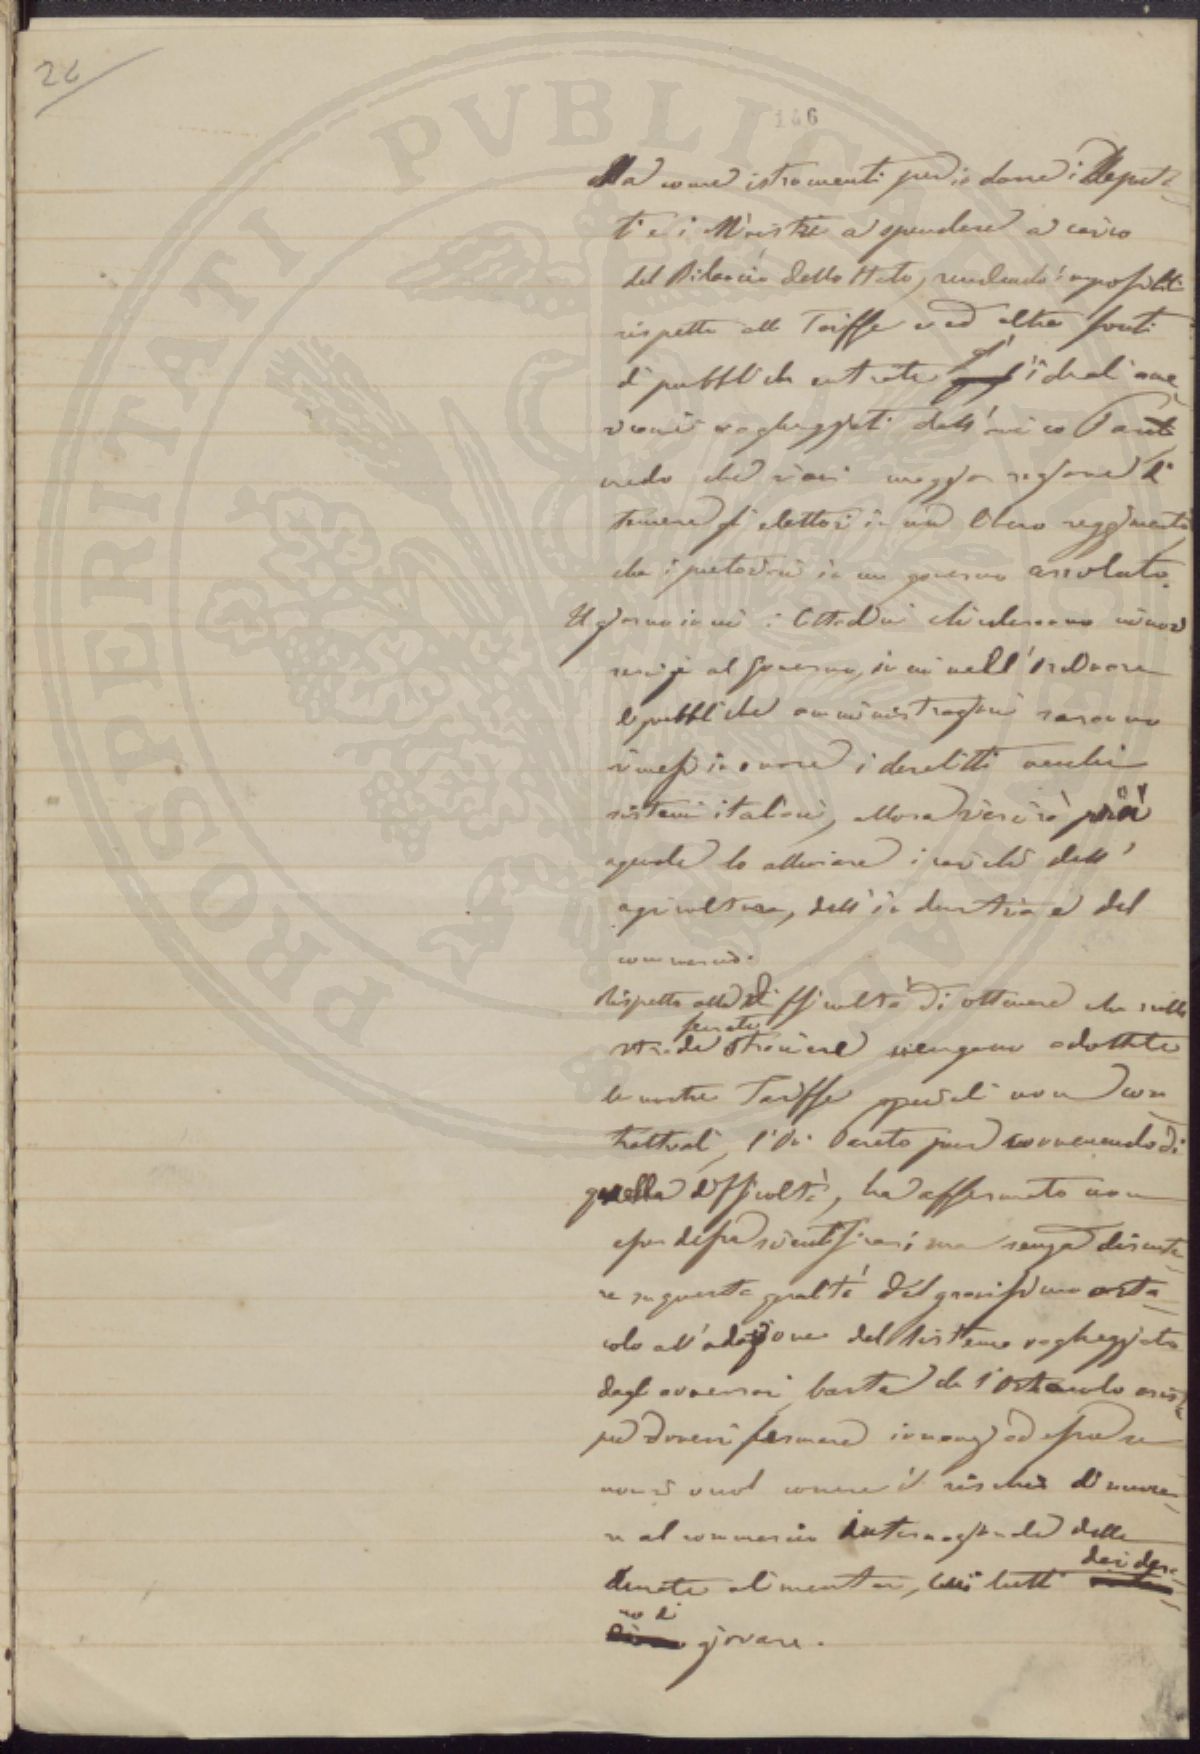 26
146
PROSPERITATI PVBLICAE
Ma come istrumenti per indurre i Deputa-
ti e i Ministri a spendere a carico
del Bilancio dello Stato, rendendo impossibili
rispetto alle Tariffe e ad altre fonti
di pubbliche entrate gl' ideali ame-
ricani vagheggiati dall'amico
credo che siavi maggior ragione di
temere gli elettori in un libero reggimento
che i pretoriani in un governo assoluto.
Il giorno in cui i Cittadini chiederanno minori
servizi al Governo, in cui nell'ordinare
le pubbliche amministrazioni saranno
rimessi in onore i derelitti vecchi
sistemi italiani, allora riescirà più
agevole lo alleviare i carichi dell'
agricoltura, dell'industria e del
commercio.
Rispetto alla difficoltà di ottenere che sulle
strade ferrate straniere vengano adottate
le nostre Tariffe speciali non con-
trattuali, l'On. Pareto pur convenendo di
quella difficoltà, ha affermato non
esser dessa senza discute-
re su questa qualità del gravissimo osta-
colo all'adozione del sistema vagheggiato
dagli avversari, basta che l'ostacolo esista
per doversi fermare innanzi ad esso se
non si vuol correre il rischio di nuoce-
re al commercio internazionale delle
derrate alimentari, cui tutti deside-
rano di giovare.